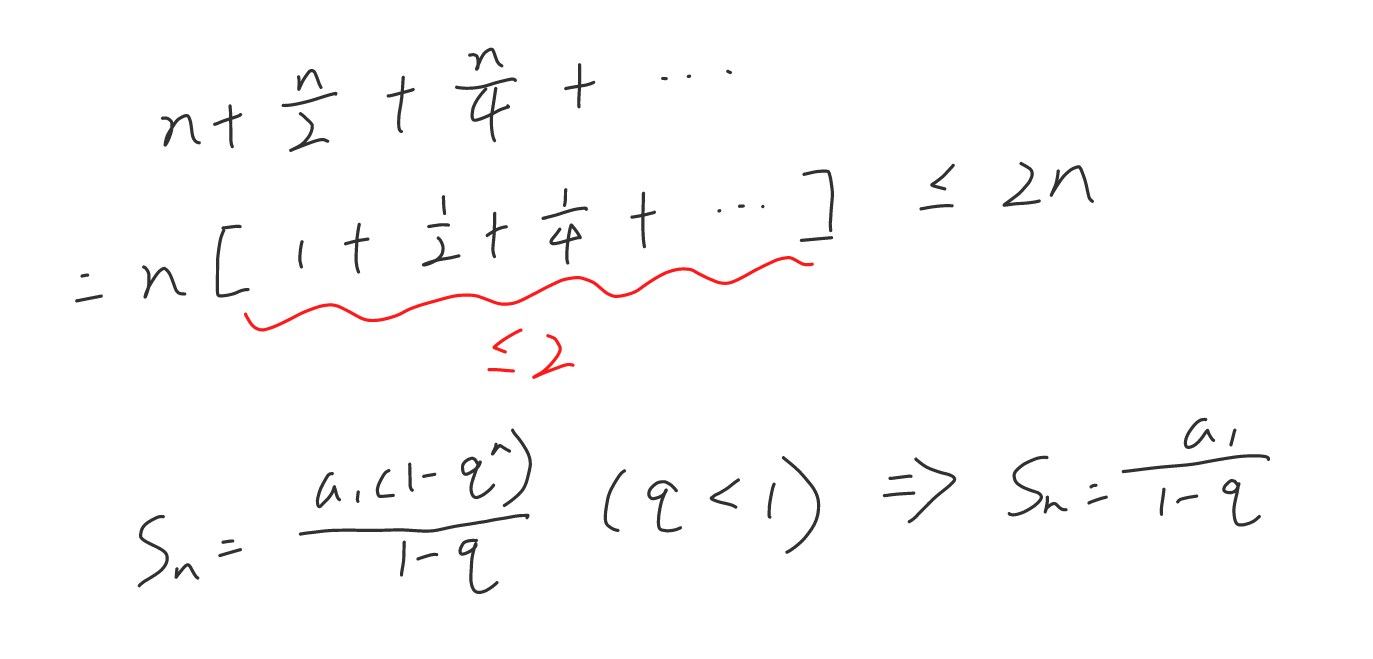 n + n/2 + n/4 + ...
= n [ 1 + 1/2 + 1/4 + ... ] ≤ 2n
≤ 2
Sₙ = a₁(1-qⁿ)/(1-q) (q < 1) ⇒ Sₙ = a₁/(1-q)